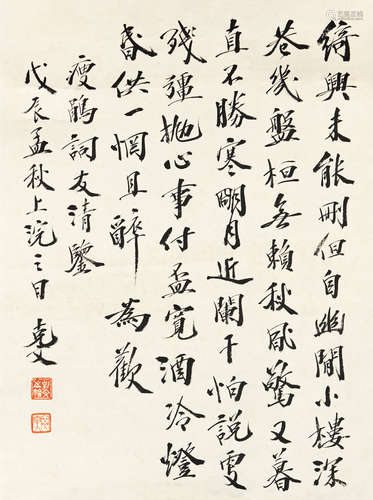 绮興未能刪但自幽閒小樓深
巷幾盤桓無賴秋風驚又暮
直不勝寒 明月近闌干怕說
殘疆拋心事付盃寬酒冷燈
昏供一惘且醉為歡
瘦鵑詞友清鑒
戊辰孟秋上浣三日